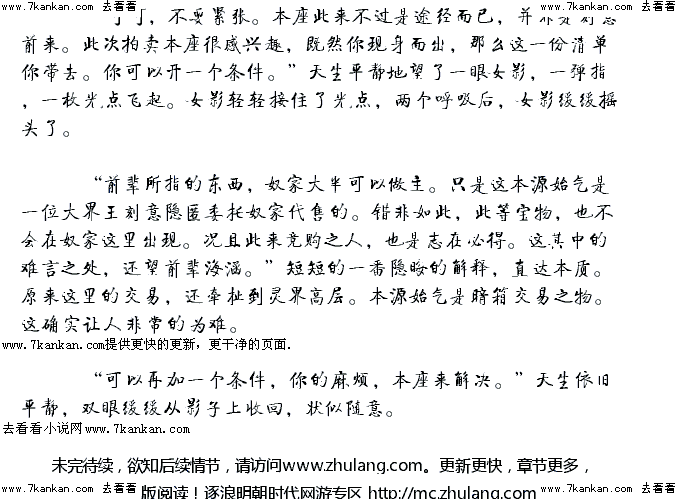 去看看 www.7kankan.com 去看看 去看看 www.7kankan.com 去看看
不要紧张。本座此来不过是途径而已，并非
前来。此次拍卖本座很感兴趣，既然你现身而出，那么这一份清单
你带去。你可以开一个条件。”天生平静地望了一眼女影，一弹指
，一枚光点飞起。女影轻轻接住了光点，两个呼吸后，女影缓缓摇
头了。
“前辈所指的东西，奴家大半可以做主。只是这本源始气是
一位大界王刻意隐匿委托奴家代售的。错非如此，此等宝物，也不
会在奴家这里出现。况且此来竞购之人，也是志在必得。这其中的
难言之处，还望前辈海涵。”短短的一番隐晦的解释，直达本质。
原来这里的交易，还牵扯到灵界高层。本源始气是暗箱交易之物。
这确实让人非常的为难。
www.7kankan.com提供更快的更新，更干净的页面.
“可以再加一个条件，你的麻烦，本座来解决。”天生依旧
平静，双眼缓缓从影子上收回，状似随意。
去看看小说网www.7kankan.com
未完待续，欲知后续情节，请访问www.zhulang.com。更新更快，章节更多，
去看看 www.7kankan.com 去看看 去看看 www.7kankan.com 去看看
版阅读！逐浪明朝时代网游专区 http://mc.zhulang.com